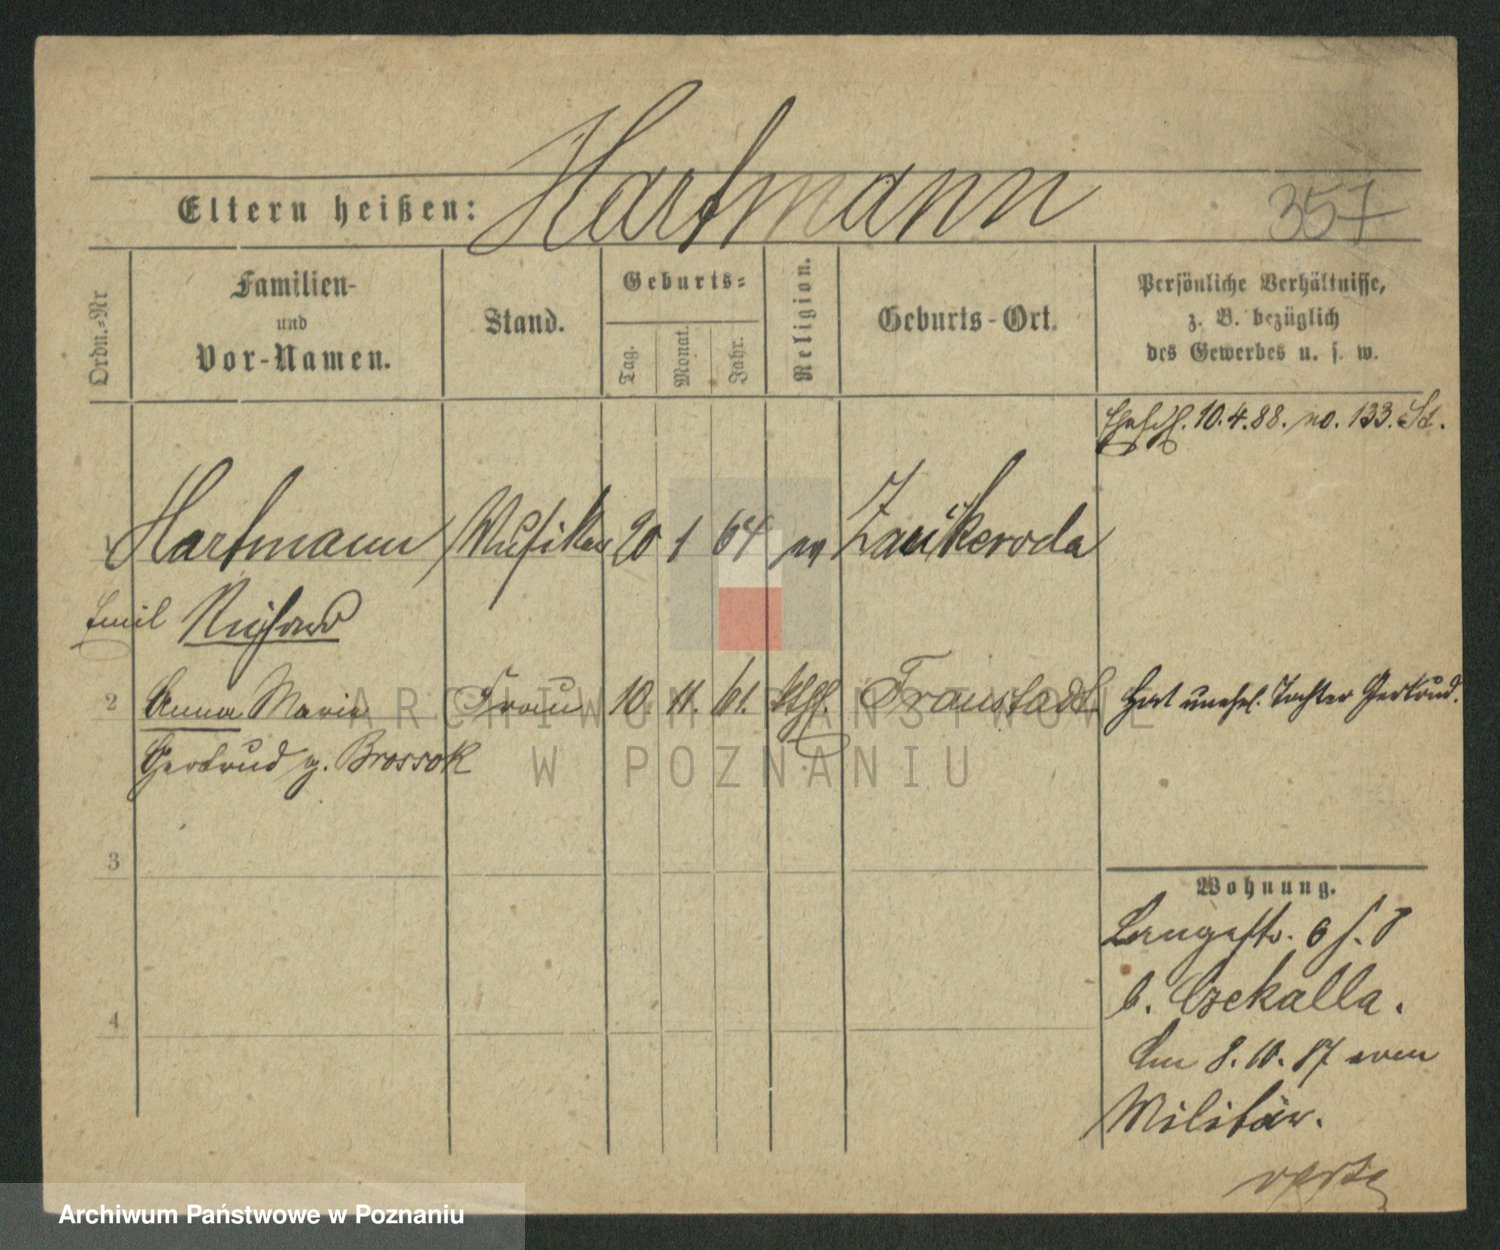 Hartmann
Eltern heißen:
357
Ordn.-Nr
Familien-
und
Vor-Namen.
Stand.
Geburts-
Tag.
Monat.
Jahr.
Religion.
Geburts-Ort.
Persönliche Verhältnisse,
z. B. bezüglich
des Gewerbes u. s. w.
Ehesch. 10.4.88. no. 133. St.
1 Hartmann Musiker 20 1 64 ev Zaukeroda
Emil Richard
2 Anna Marie Frau 10. 11. 61. kthl. Fraustadt. Hat unehel. Tochter Gertrud.
Gertrud g. Brossok
3
Wohnung.
Langestr. 6
b. Czekalla.
4
Am 8.10.87 vom
Militär.
verte
ARCHIWUM PAŃSTWOWE
W POZNANIU
Archiwum Państwowe w Poznaniu